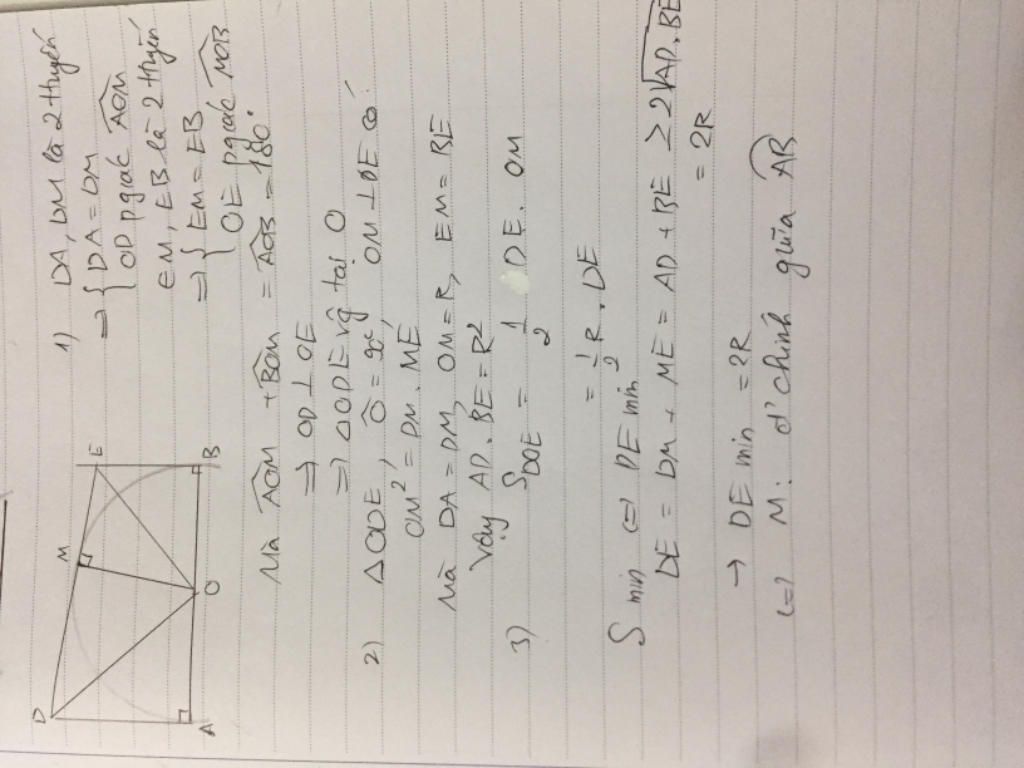 D
M
E
A
O
B
1) DA, DM là 2 thuyến
⇒ { DA = DM
OD pgiác \widehat{AOM}
EM, EB là 2 thuyến
⇒ { EM = EB
OE pgiác \widehat{MOB}
Mà \widehat{AOM} + \widehat{BOM} = \widehat{AOB} = 180°
⇒ OD ⊥ OE
⇒ ΔODE vg tại O
2) ΔODE, \widehat{O} = 90°, OM ⊥ DE có:
OM² = DM . ME
Mà DA = DM, OM = R, EM = BE
Vậy AD . BE = R²
3) S_{DOE} = \frac{1}{2} DE . OM
= \frac{1}{2} R . DE
S min ⇔ DE min
DE = DM + ME = AD + BE ≥ 2\sqrt{AD.BE}
= 2R
→ DE min = 2R
⇔ M : đ' chính giữa \widehat{AB}